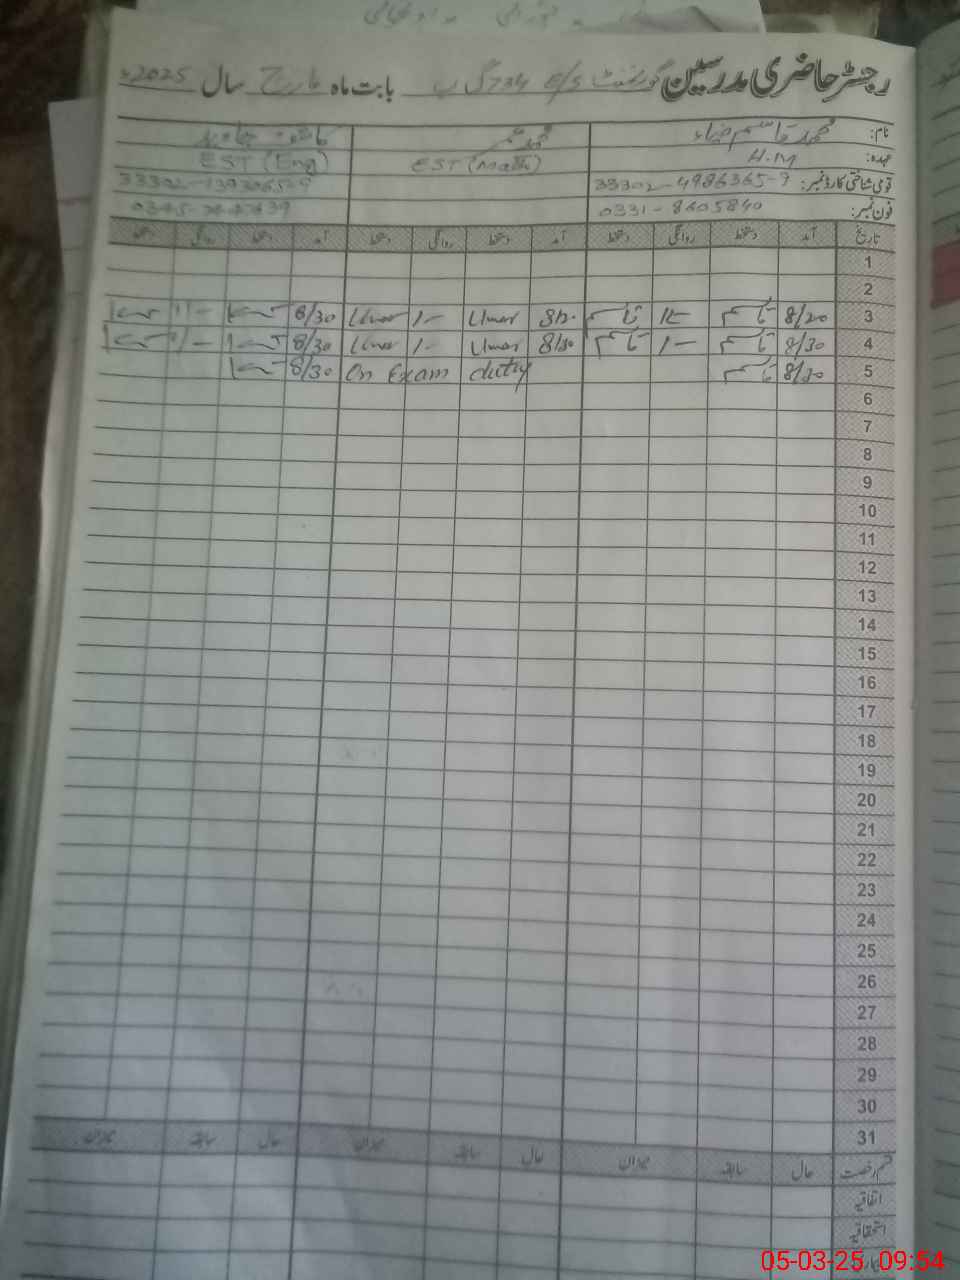 رجسٹر حاضری مدرسین گورنمنٹ E/S 734 گ ب بابت ماہ مارچ سال 2025ء
نام: محمد قاسم ضیاء محمد عمر
عہدہ: H.M EST (Math) EST (Eng)
قومی شناختی کارڈ نمبر: 33302-4986365-9
فون نمبر: 0331-8605840
تاریخ آمد دستخط روانگی دستخط آمد دستخط روانگی دستخط آمد دستخط روانگی دستخط
1
2
3 8/30 قاسم 1- قاسم 8/30 Umar 1- Umar 8/30 1-
4 8/30 قاسم 1- قاسم 8/30 Umar 1- Umar 8/30 1-
5 8/30 قاسم On Exam duty 8/30
6
7
8
9
10
11
12
13
14
15
16
17
18
19
20
21
22
23
24
25
26
27
28
29
30
31
قسم رخصت حال سابقہ میزان حال سابقہ میزان حال سابقہ میزان
اتفاقیہ
استحقاقیہ
05-03-25 09:54